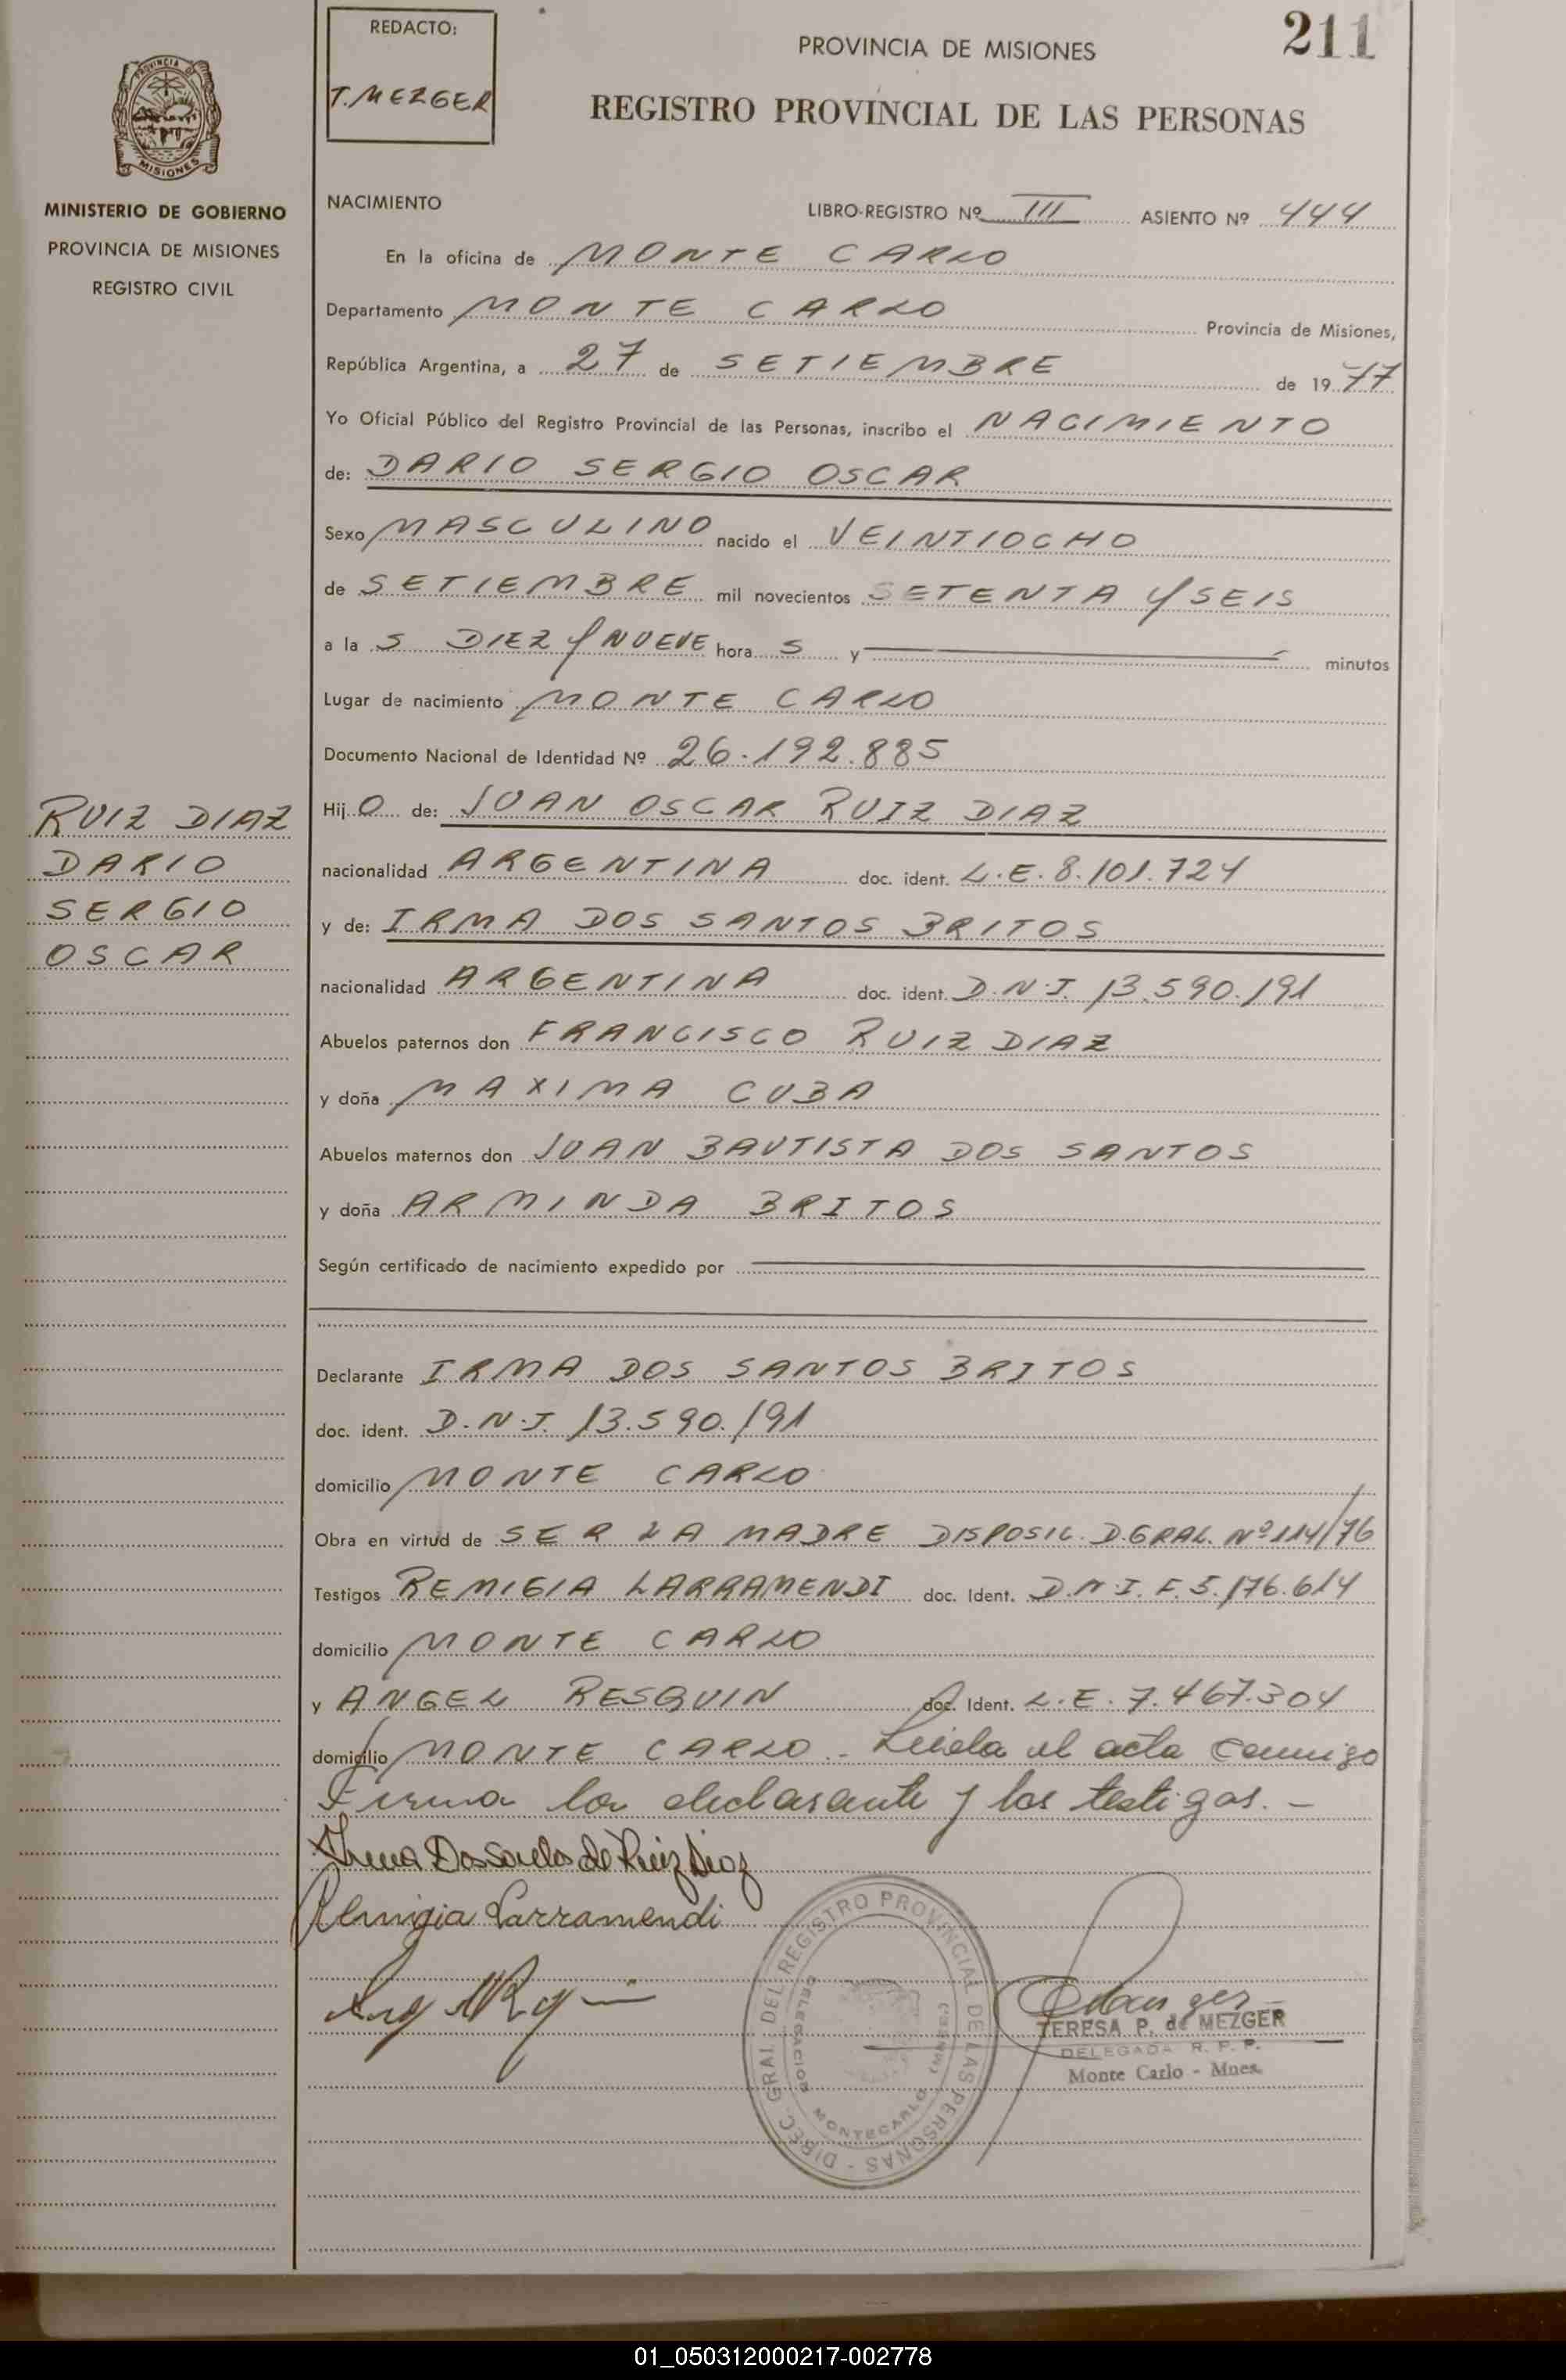 211
REDACTO:
T. MEZGER
PROVINCIA DE MISIONES
REGISTRO PROVINCIAL DE LAS PERSONAS
PROVINCIA DE
MISIONES
MINISTERIO DE GOBIERNO
PROVINCIA DE MISIONES
REGISTRO CIVIL
NACIMIENTO LIBRO-REGISTRO Nº III ASIENTO Nº 444
En la oficina de MONTE CARLO
Departamento MONTE CARLO Provincia de Misiones,
República Argentina, a 27 de SETIEMBRE de 1977
Yo Oficial Público del Registro Provincial de las Personas, inscribo el NACIMIENTO
de: DARIO SERGIO OSCAR
Sexo MASCULINO nacido el VEINTIOCHO
de SETIEMBRE mil novecientos SETENTA Y SEIS
a la S DIEZ Y NUEVE hora S y minutos
Lugar de nacimiento MONTE CARLO
Documento Nacional de Identidad Nº 26.192.885
Hij O de: JUAN OSCAR RUIZ DIAZ
RUIZ DIAZ
DARIO
SERGIO
OSCAR
nacionalidad ARGENTINA doc. ident. L.E. 8.101.724
y de: IRMA DOS SANTOS BRITOS
nacionalidad ARGENTINA doc. ident. D.N.I. 13.590.191
Abuelos paternos don FRANCISCO RUIZ DIAZ
y doña MAXIMA CUBA
Abuelos maternos don JUAN BAUTISTA DOS SANTOS
y doña ARMINDA BRITOS
Según certificado de nacimiento expedido por
Declarante IRMA DOS SANTOS BRITOS
doc. ident. D.N.I. 13.590.191
domicilio MONTE CARLO
Obra en virtud de SER LA MADRE DISPOSIC. D.GRAL. Nº 114/76
Testigos REMIGIA LARRAMENDI doc. Ident. D.N.I. F. 5.176.614
domicilio MONTE CARLO
y ANGEL RESQUIN doc. Ident. L.E. 7.467.304
domicilio MONTE CARLO. - Leida el acta conmigo
Firma la declarante y los testigos. -
Irma Dos Santos de Ruiz Diaz
Remigia Larramendi
DIREC. GRAL. DEL REGISTRO PROVINCIAL DE LAS PERSONAS -
DELEGACION MONTECARLO (MISIONES)
TERESA P. de MEZGER
DELEGADA R. P. P.
Monte Carlo - Mnes.
01_050312000217-002778